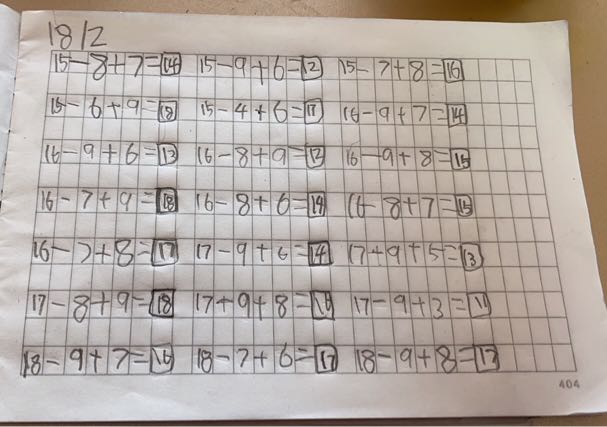 18/2
15-8+7=14 15-9+6=12 15-7+8=16
15-6+9=18 15-4+6=17 16-9+7=14
16-9+6=13 16-8+9=17 16-9+8=15
16-7+9=18 16-8+6=14 16-8+7=15
16-7+8=17 17-9+6=14 17+9+5=13
17-8+9=18 17+9+8=16 17-9+3=11
18-9+7=16 18-7+6=17 18-9+8=17
404